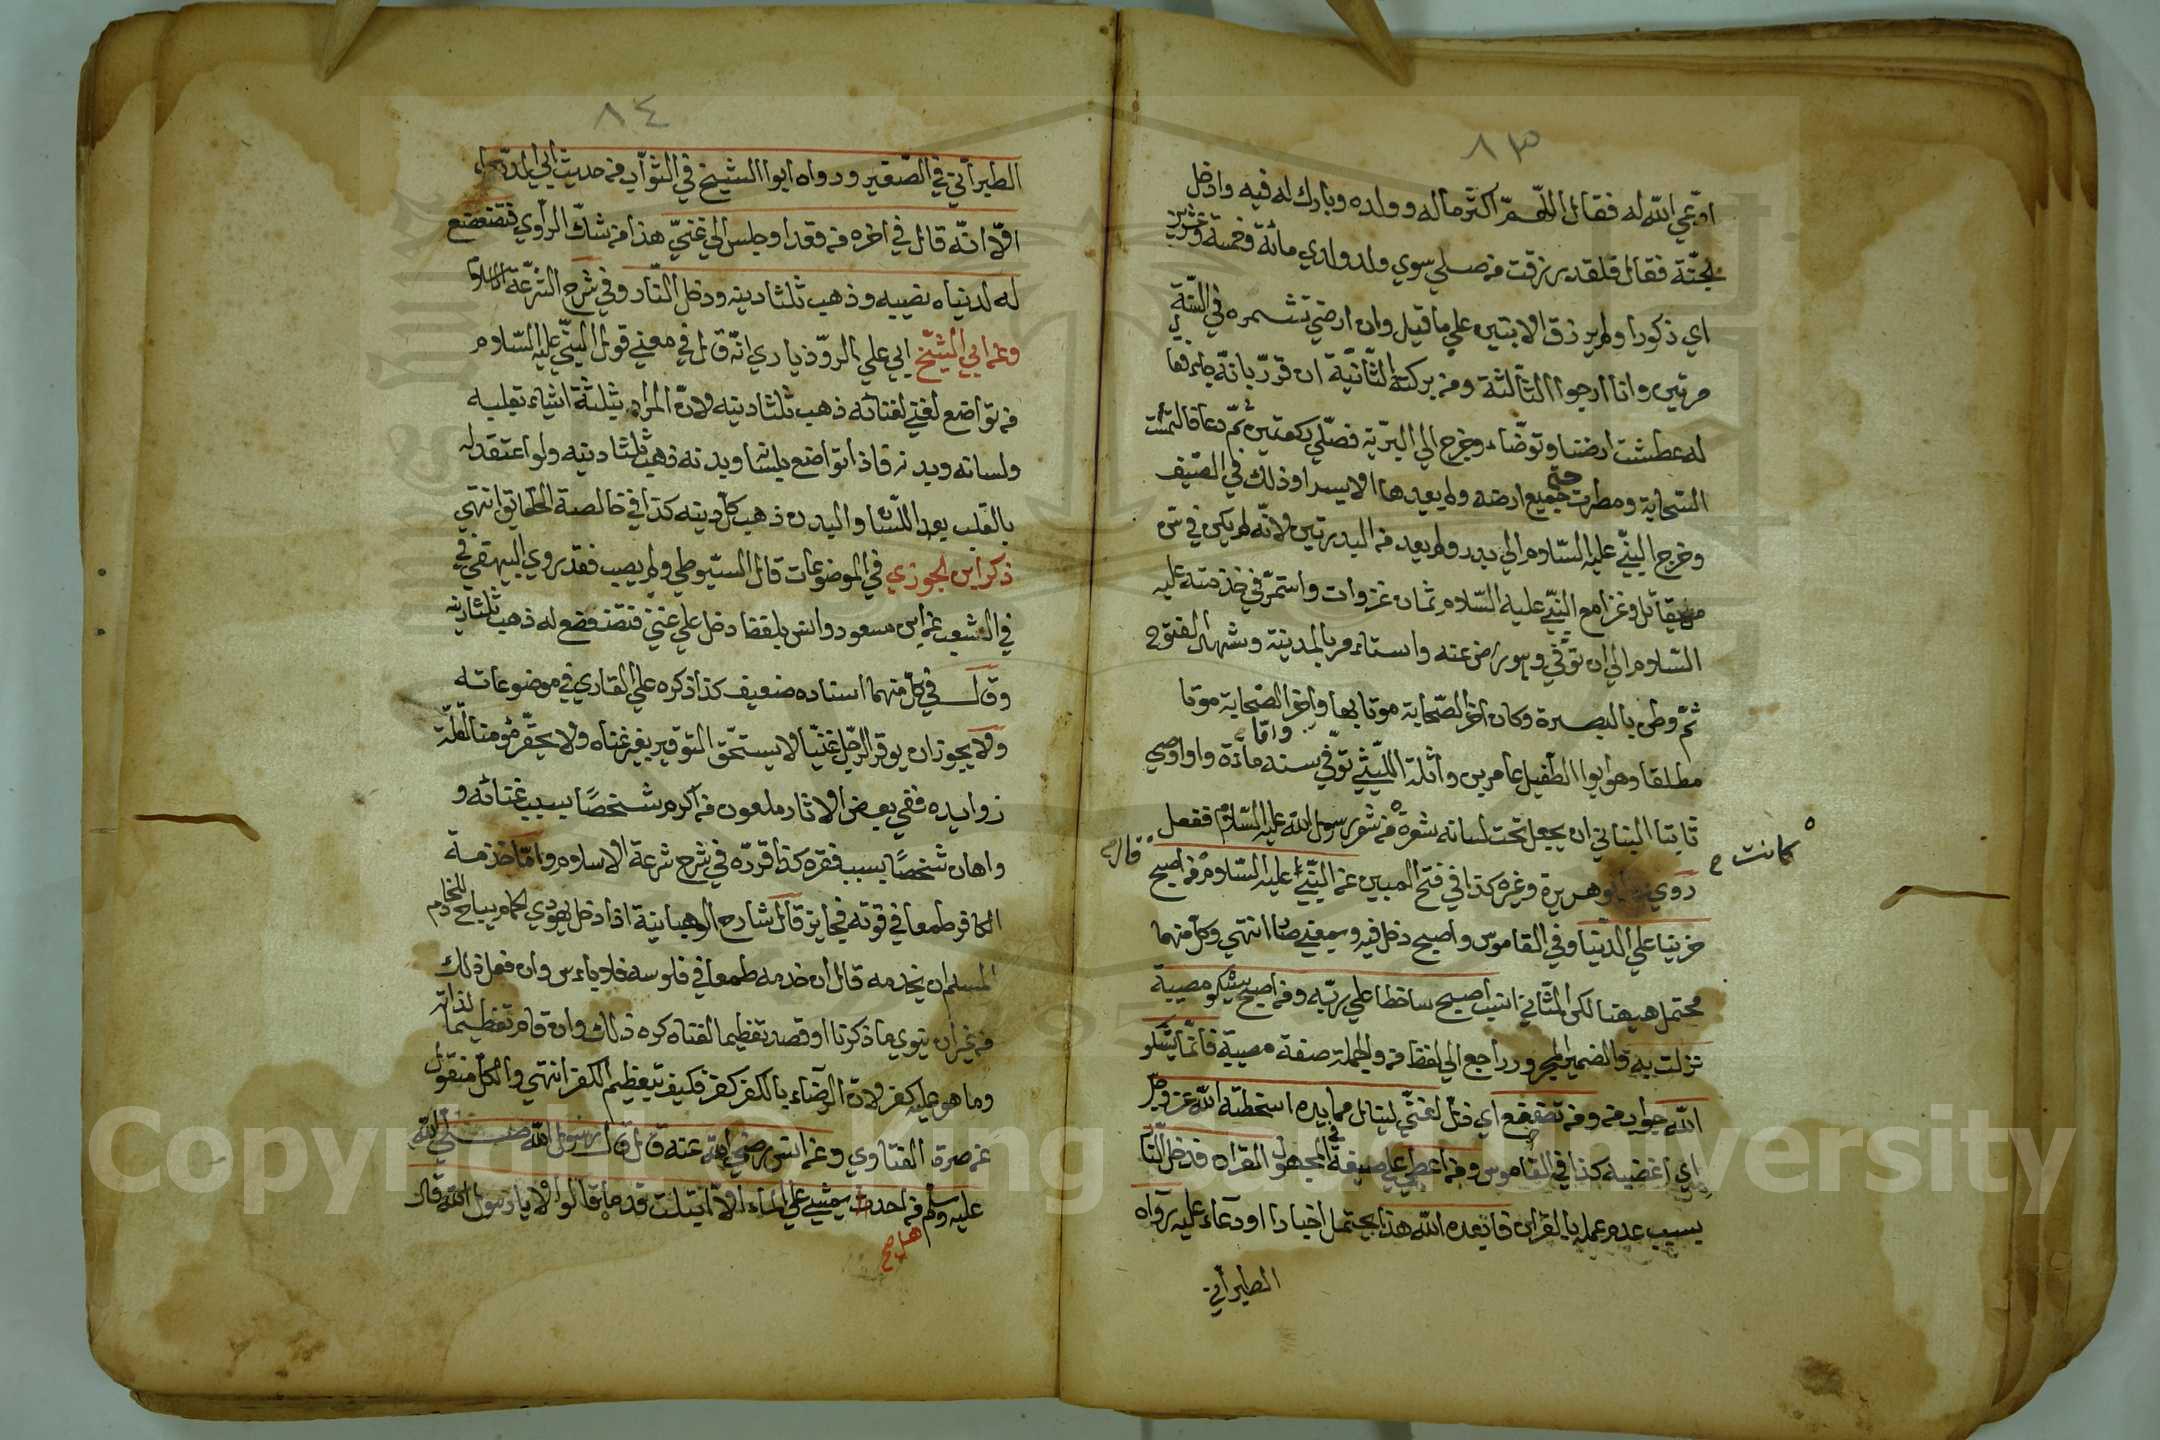 ٨٣
ادعي الله له فقال اللهم اكثر ماله وولده وبارك له فيه وادخل
الجنة فقال فلقد رزقت من صلبي سوي ولد ولدي مائة وخمسة وعشرين
اي ذكورا ولم يرزق الا بنتين علي ما قيل وان ارضي تثمره في السنة
مرتين وانا ارجوا الثالثة ومن بركته الثانية ان قرر بانه جاء
له عطشت ارضنا وتوضاء وخرج الي البرية فصلي ركعتين ثم دعا فالتمت
السحابة ومطرت حتى جميع ارضه ولم يعدها الا يسيرا وذلك في الصيف
وخرج النبي عليه السلام الي بدر ولم يعد من البدريين لانه لم يكن في سن
من يقاتل وغزا مع النبي عليه السلام ثمان غزوات واستمر في خذمته عليه
السلام الي ان توفي وهو راض عنه واستاء مر بالمدينة وشهد الفتوح
ثم وطن بالبصرة وكان اخر الصحابة موتا بها واما اخر الصحابة موتا
مطلقا وهو ابوا الطفيل عامر بن واثلة الليثي توفي سنه مائة واوصي
ثابتا البناني ان يجعل تحت لسانه شعرة من شعر رسول الله عليه السلام ففعل
كانت
روي ابو هريرة وغيره كذا في فتح المبين عن النبي عليه السلام من اصبح
قال
حزينا علي الدنيا وفي القاموس واصبح دخل فيه وبمعني صار انتهي وكل منهما
محتمل هيهنا لكن الثاني انسب اصبح ساخطا علي ربه ومن اصبح يشكو مصيبة
نزلت به والضمير المجرور راجع الي لفظ من والجملة صفة مصيبة فانما يشكو
الله جواب من ومن تضعضع اي ذل لغني لينال مما بيده اسخطه الله عز وجل
اي اغضبه كذا في القاموس ومن اعطي علي صيغة المجهول القران فدخل النار
بسبب عدم عمله بالقران فابعده الله هذا يحتمل اخبارا او دعاء عليه رواه
الطبراني
٨٤
الطبراني في الصغير ورواه ابوا الشيخ في الثواب من حديث ابي الدرداء
الا انه قال في اخره من قعد او جلس الي غني هذا من شك الراوي فتضعضع
له لدنياه نصيبه وذهب ثلثا دينه ودخل النار وفي شرح الشرعة
وعن ابي الشيخ ابي علي الروذباري انه قال في معني قول النبي عليه السلام
من تواضع لغني لغنائه ذهب ثلثا دينه لان المراد بثلثة اشياء بقلبه
ولسانه وبدنه فاذا تواضع بلسانه وبدنه ذهب ثلثا دينه ولو اعتقد له
بالقلب بعد اللسان والبدن ذهب كل دينه كذا في خالصة الحقايق انتهي
ذكر ابن الجوزي في الموضوعات قال السيوطي ولم يصب فقد روي البيهقي في
في الشعب عن ابن مسعود وانس بلفظ دخل علي غني فتضعضع له ذهب ثلثا دينه
وقال في كل منهما اسناده ضعيف كذا ذكره علي القاري في موضوعاته
ولا يجوز ان يوقر الرجل غنيا لا يستحق التوقير بغير غناه ولا يحقر مؤمنا لقلة
زوايده ففي بعض الاثار ملعون من اكرم شخصا بسبب غنائه و
واهان شخصا بسبب فقره كذا قرره في شرح شرعة الاسلام واما خذمة
الكافر طمعا في قوته فجايز قال شارح الوهبانية اذا دخل يهودي الحمام يباح للخادم
المسلم ان يخدمه قال ان خدمه طمعا في فلوسه فلا باءس وان فعل ذلك
من غير ان ينوي ما ذكرنا او قصد تعظيما لغناه كره ذلك وان قام تعظيما لذاته
وما هو عليه كفر لان الرضاء بالكفر كفر فكيف تعظيم الكفر انتهي والكل منقول
عن صرة الفتاوي وعن انس رضي الله عنه قال قال رسول الله صلي الله
عليه وسلم من احدث يمشي علي الماء الا ابتلت قدماه قالوا لا يا رسول الله قال
هل صح
Copyright © King Saud University